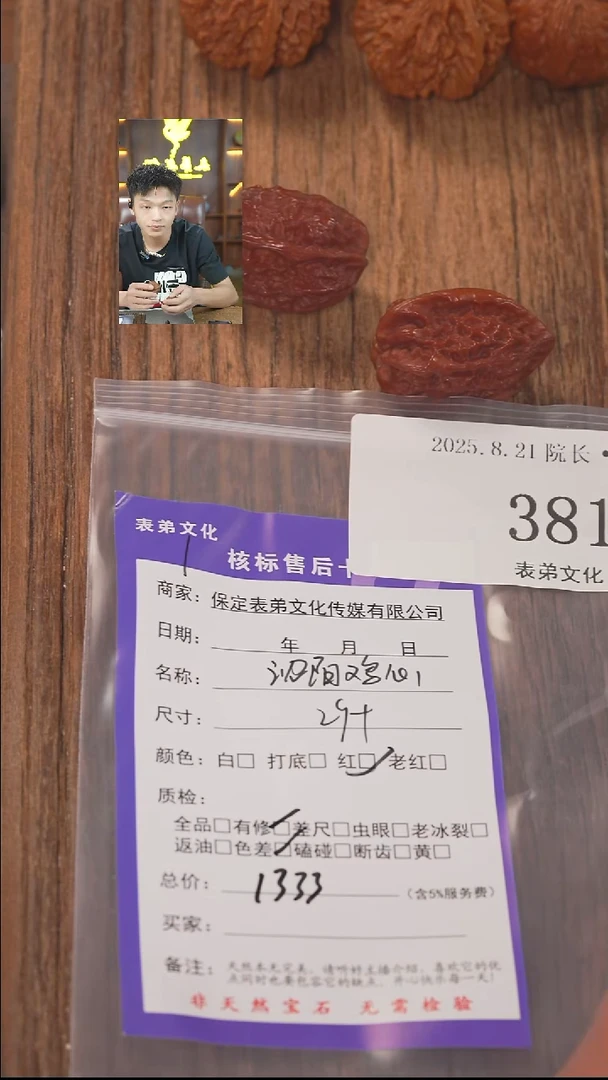 2025.8.21 院长
381
表弟文化
表弟文化
核标售后卡
商家：保定表弟文化传媒有限公司
日期： 年 月 日
名称：泗阳鸡心
尺寸：29+
颜色：白□ 打底□ 红☑ 老红□
质检：
全品□有修☑差尺□虫眼□老冰裂□
返油□色差☑磕碰□断齿□黄□
总价：1333（含5%服务费）
买家：
备注：天然本无完美，请听好主播介绍，喜欢它的优
点同时也要包容它的缺点，开心快乐每一天！
非天然宝石 无需检验